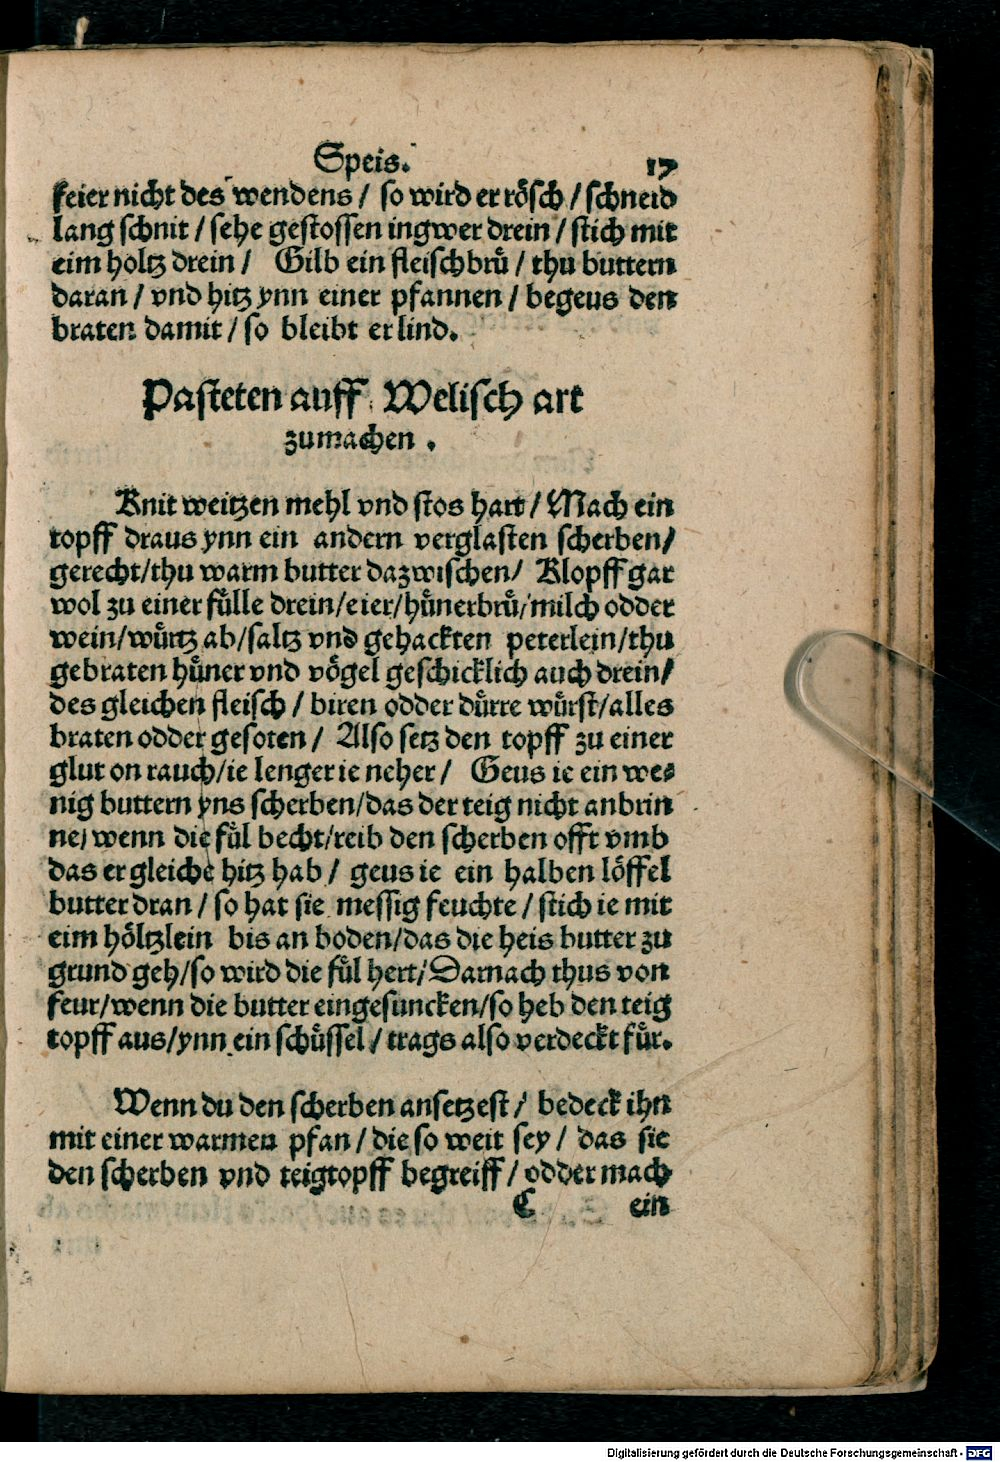 Speis. 17
feier nicht des wendens / so wird er rösch / schneid
lang schnit / sehe gestossen ingwer drein / stich mit
eim holtz drein / Gilb ein fleischbrü / thu buttern
daran / vnd hitz ynn einer pfannen / begeus den
braten damit / so bleibt er lind.
Pasteten auff Welisch art
zumachen .
Knit weitzen mehl vnd stos hart / Mach ein
topff draus ynn ein andern verglasten scherben/
gerecht/thu warm butter dazwischen/ Klopff gar
wol zu einer fülle drein/eier/hünerbrü/milch odder
wein/würtz ab/saltz vnd gehackten peterlein/thu
gebraten hüner vnd vögel geschicklich auch drein/
des gleichen fleisch / biren odder dürre würst/alles
braten odder gesoten / Also setz den topff zu einer
glut on rauch/ie lenger ie neher / Geus ie ein we⸗
nig buttern yns scherben/das der teig nicht anbrin
ne/ wenn die fül becht/reib den scherben offt vmb
das er gleiche hitz hab / geus ie ein halben löffel
butter dran / so hat sie messig feuchte / stich ie mit
eim höltzlein bis an boden/das die heis butter zu
grund geh/so wird die fül hert/Darnach thus von
feur/wenn die butter eingesuncken/so heb den teig
topff aus/ynn ein schüssel / trags also verdeckt für.
Wenn du den scherben ansetzest / bedeck ihn
mit einer warmen pfan / die so weit sey / das sie
den scherben vnd teigtopff begreiff / odder mach
C ein
Digitalisierung gefördert durch die Deutsche Forschungsgemeinschaft - DFG